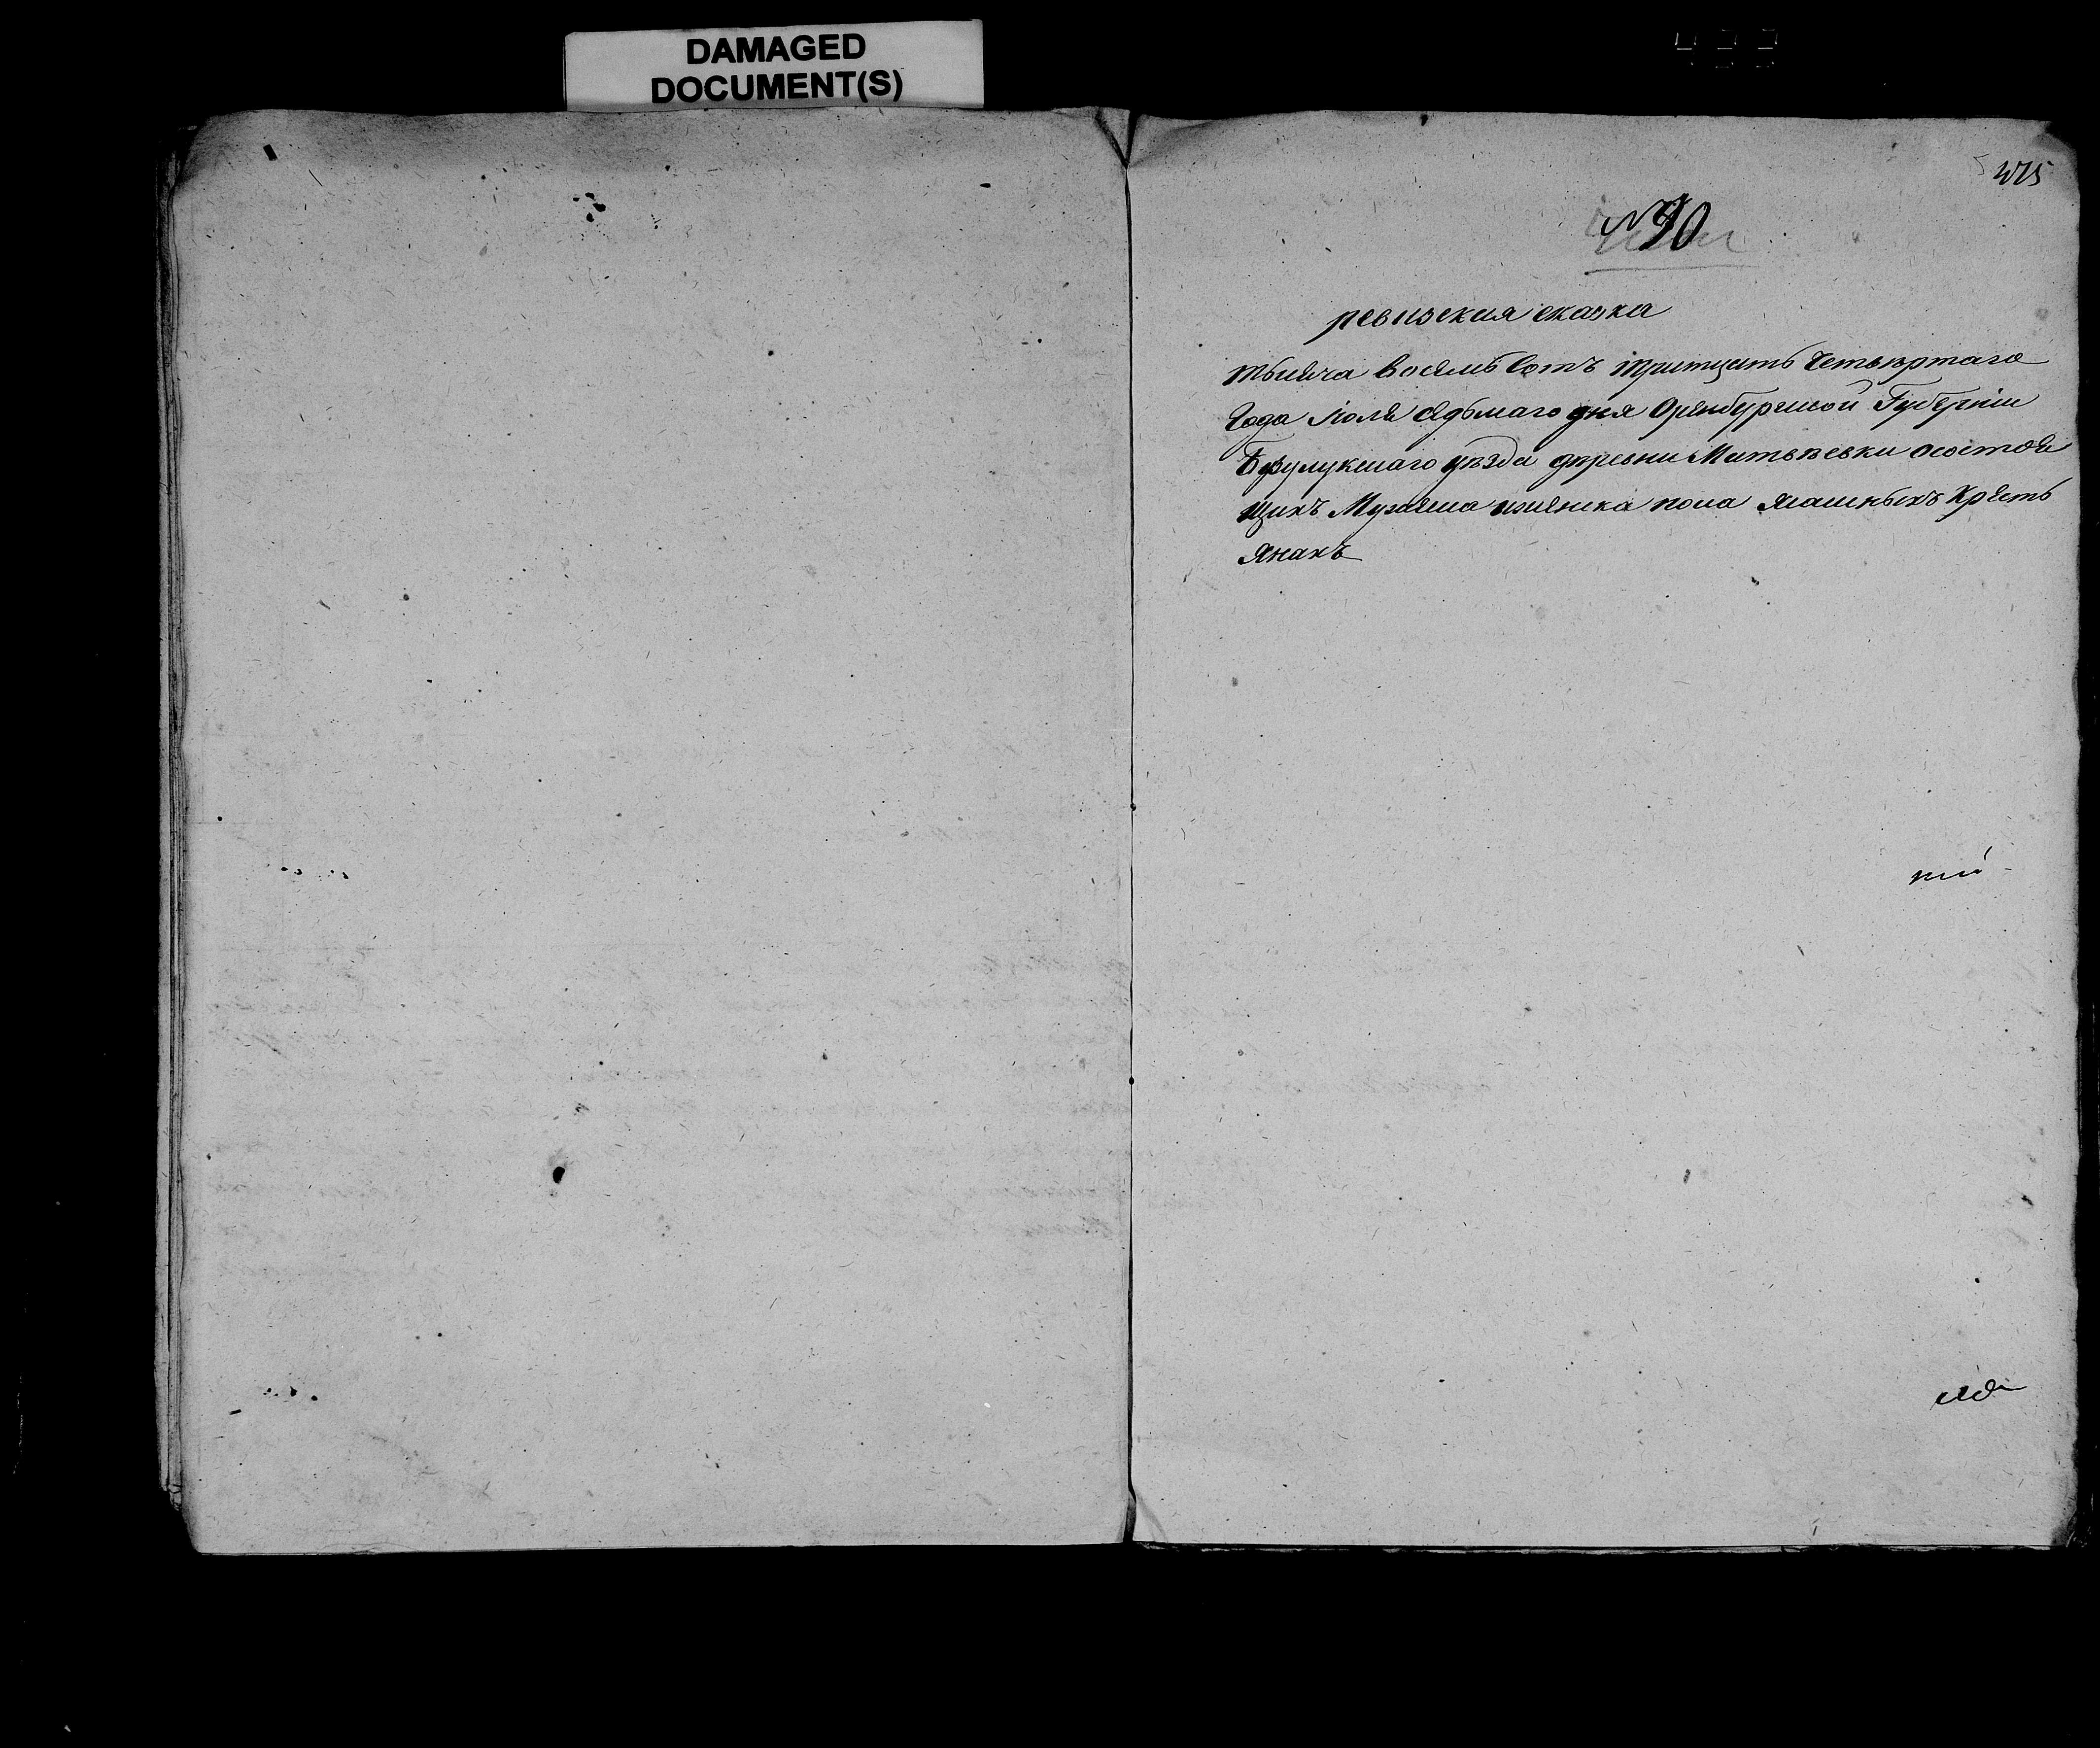 DAMAGED
DOCUMENT(S)
475
№ 90
ревизская сказка
тысяча восемь сотъ тритцать четвертаго
года июля седьмаго дня Оренбургской Губернии
Бузулукскаго уѣзда деревни Матвѣевки осостоя
щихъ мужеска и женска пола ясашныхъ кресть
янахъ